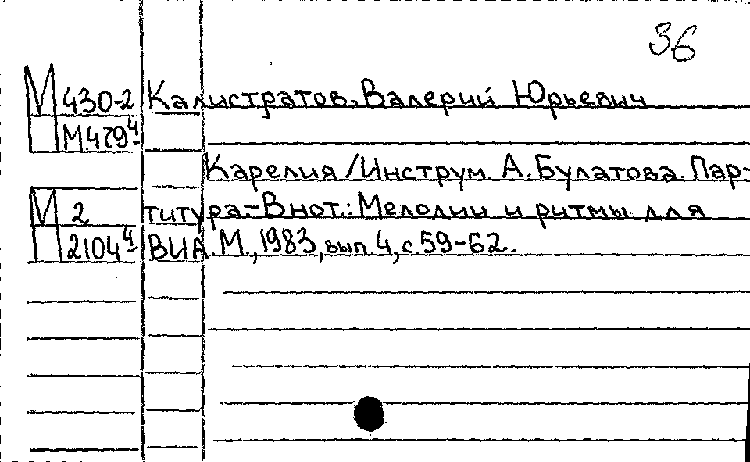 36
М 430-2 Калистратов, Валерий Юрьевич
П М4794
Карелия /Инструм. А. Булатова. Пар-
М 2 титура.-В нот.: Мелодии и ритмы для
П 21044 ВИА. М., 1983, вып. 4, с. 59-62.